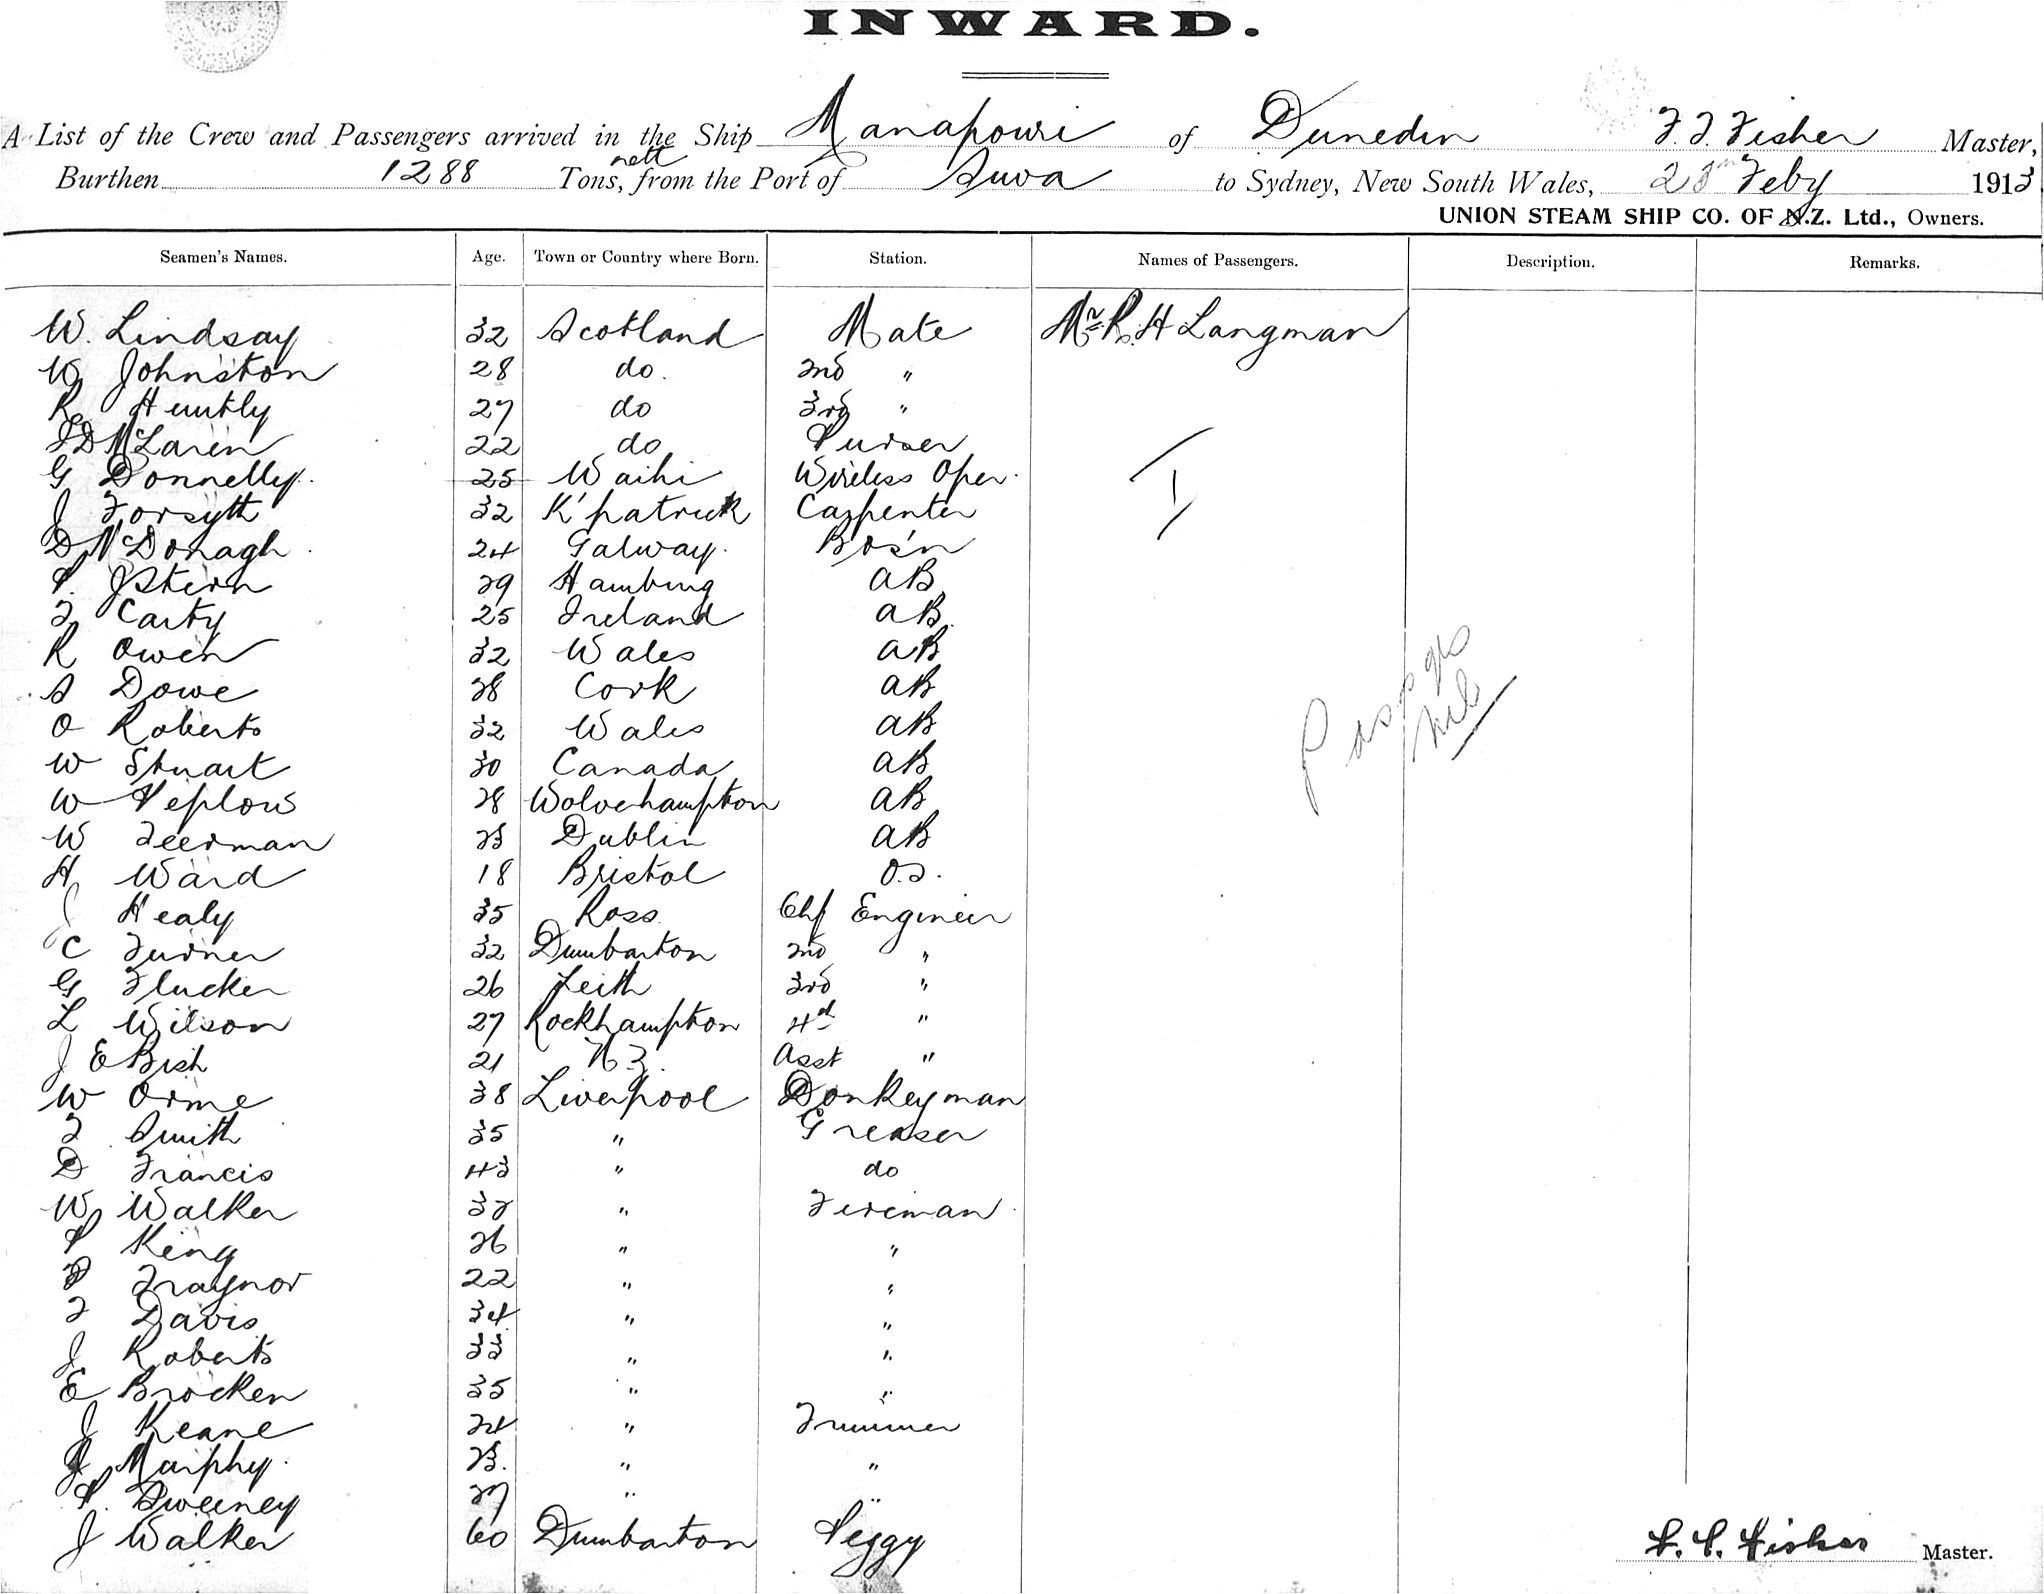 INWARD.
A List of the Crew and Passengers arrived in the Ship Manapouri of Dunedin F. J. Fisher Master,
Burthen 1288 Tons, nett from the Port of Suva to Sydney, New South Wales, Feby 1913
UNION STEAM SHIP CO. OF N.Z. Ltd., Owners.
Seamen's Names. Age. Town or Country where Born. Station. Names of Passengers. Description. Remarks.
W. Lindsay 32 Scotland Mate Mr R. H Langman
W Johnston 28 do. 2nd "
R Huntly 27 do 3rd "
McLaren 22 do Purser
G Donnelly. 25 Waihi Wireless Oper.
J Forsyth 32 K'patrick Carpenter
D McDonagh. 24 Galway. Bos'n
P. J Stern 29 Hamburg AB
T Carty 25 Ireland AB.
R Owen 32 Wales AB
S Dowe 28 Cork AB
O Roberts 32 Wales AB
W Stuart 30 Canada AB
W Peplow 28 Wolverhampton AB
W Teerman 23 Dublin AB
H Ward 18 Bristol O.S.
J Healy 35 Ross Chf Engineer
C Turner 32 Dumbarton 2nd "
G Flucker 26 Leith 3rd "
L Wilson 27 Rockhampton 4th "
J E Bish 21 NZ. Asst "
W Orme 38 Liverpool Donkeyman
T Smith 35 " Greaser
D Francis 43 " do
W Walker 32 " Fireman
P King 26 " "
P Traynor 22 " "
T Davis 34 " "
J Roberts 33 " "
E Brocken 35 " "
J Keane 24 " Trimmer
J Murphy. 23. " "
P. Sweeney 27 " "
J Walker 60 Dumbarton Peggy
Passgrs
Nil
Fisher Master.